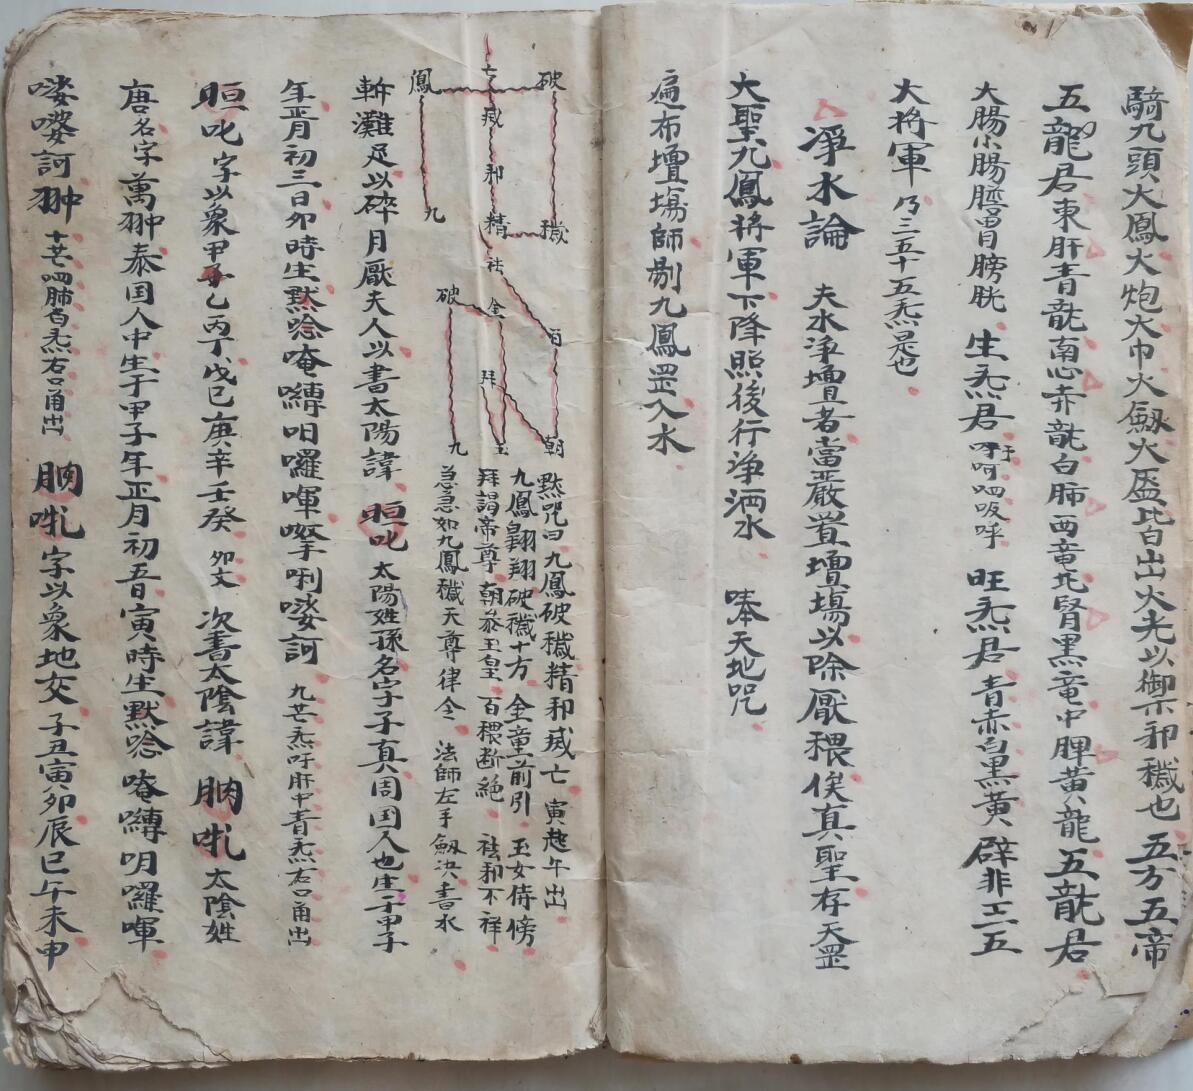 騎九頭大鳳火炮火巾火劔火盔皆出火光以御邪穢也 五方五帝
五龍君東肝青龍南心赤龍白肺西竜北腎黑竜中脾黃龍五龍君
大腸小腸膀胱 生炁君 呵呬吸呼 旺炁君青赤白黑黃 辟非工五
大將軍 乃三五十五炁是也
淨水論 夫水淨壇者當嚴置壇場以除厭穢俟真聖存天罡
大聖九鳳將軍下降照後行淨洒水 天地咒
遍布壇場師剔九鳳罡入水
鳳 亡 破
賊
邪
九 精 穢
祛
破 金 百
拜
九 玉 朝
默咒曰九鳳破穢精邪滅亡 寅越午出
九鳳翱翔破穢十方 金童前引 玉女侍傍
拜謁帝尊 朝叅玉皇 百穢断絶 祛邪不祥
急急如九鳳穢天尊律令 法師左手劔决書水
斬灘足以碎月厭夫人以書太陽諱 晅叱 太陽姓孫名字子真周国人也生于甲子
年正月初三日卯時生默唸唵嚩呾囉嗱唎娑訶 九芒炁吁肝中青炁右口角出
晅叱 字以象甲子乙丙丁戊己庚辛壬癸 次書太陰諱 太陰姓
唐名字萬翀泰国人中生于甲子年正月初五日寅時生默唸 唵嚩明囉
娑訶翀 十芒呬肺白炁右口角出 字以象地支 子丑寅卯辰巳午未申